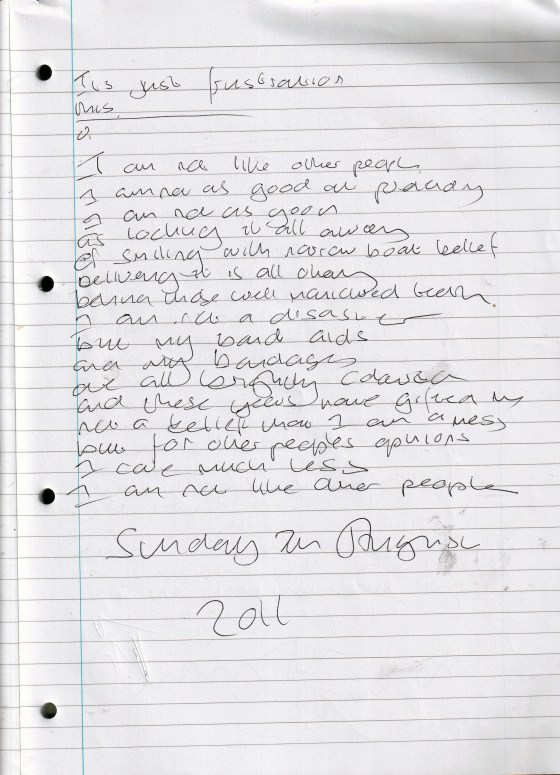 Its just frustration
this
I am not like other people
I am not as good at
I am not as good
as locking it all away
of smiling with narrow boat belief
believing it is all okay
behind those well manicured teeth.
I am not a disaster
but my band aids
and my bandages
are all brightly
and these years have gifted me
not a belief that I am a mess
but for other peoples opinions
I care much less
I am not like other people
Sunday 7th August
2011